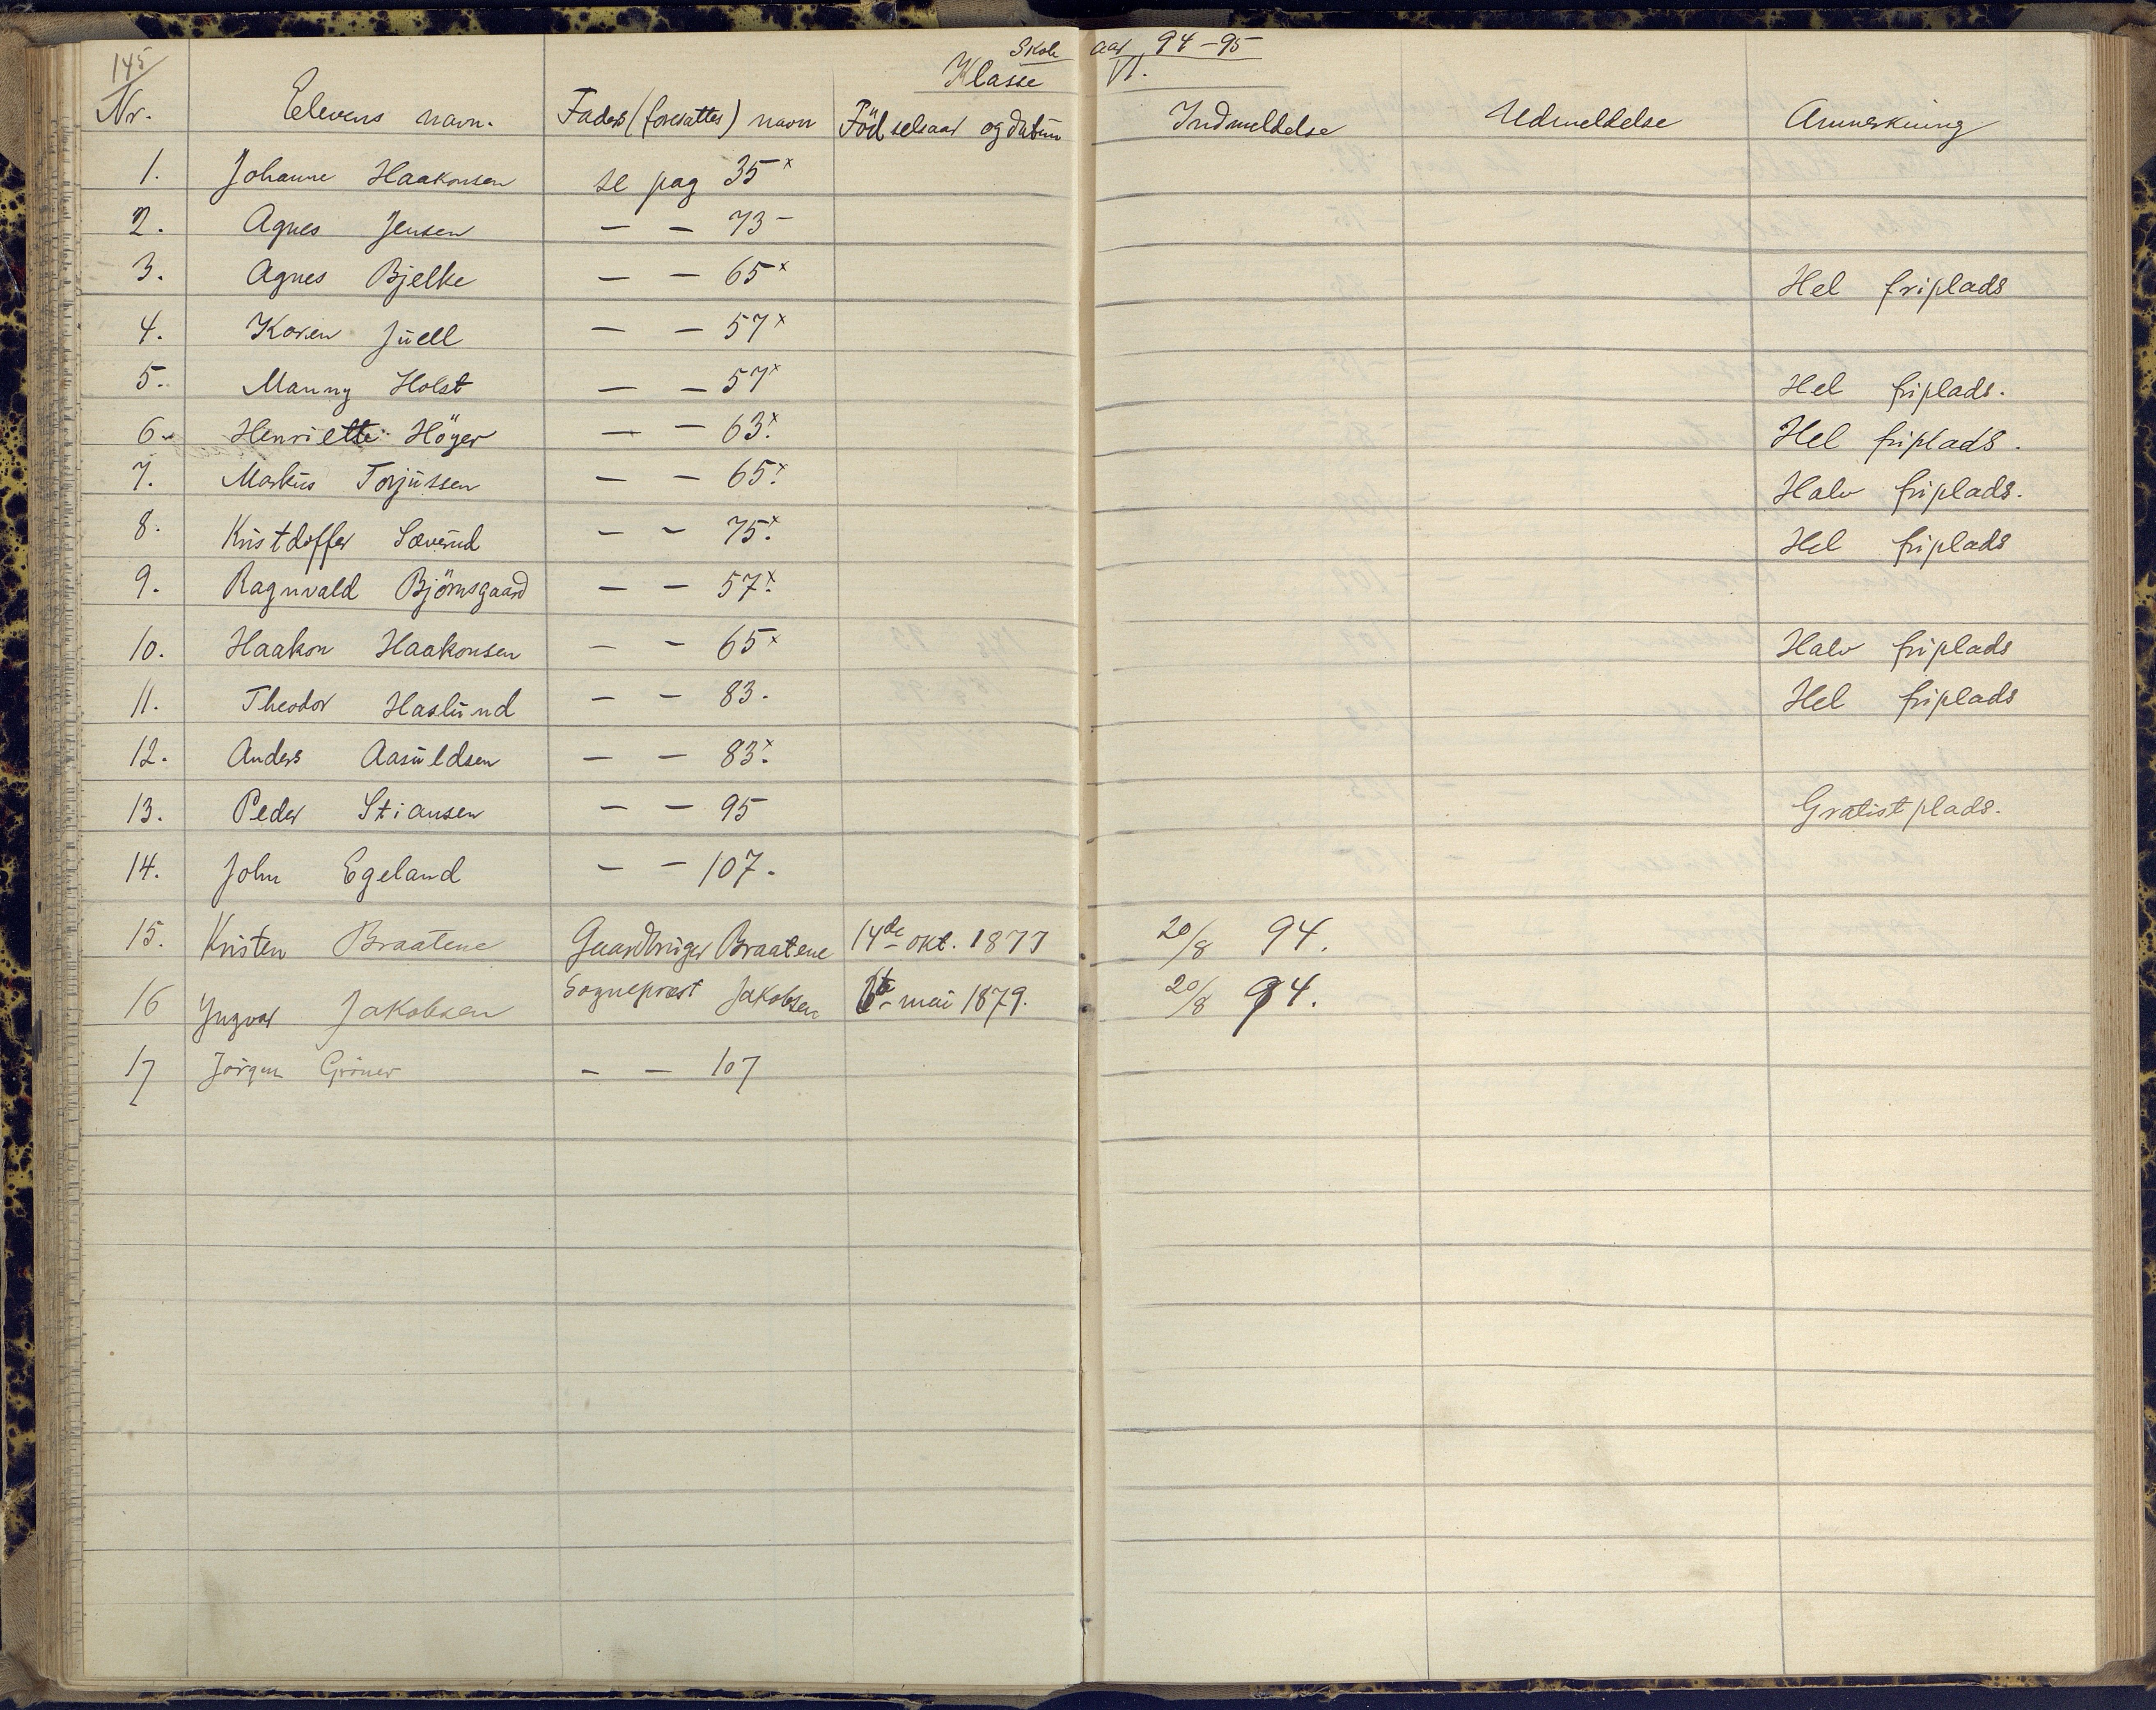 145
Skole aar 94-95
Klasse VI.
Nr. Elevens navn. Faders (foresattes) navn Födselsaar og datum Indmeldelse Udmeldelse Anmerkning
1. Johanne Haakonsen se pag 35 x
2. Agnes Jensen — — 73 -
3. Agnes Bjelke — — 65 x Hel friplads
4. Karen Juell — — 57 x
5. Manny Holst — — 57 x Hel friplads.
6. Henriette Höyer — — 63. x Hel friplads.
7. Markus Torjussen — — 65. x Halv friplads.
8. Kristoffer Sæverud — — 75. x Hel friplads
9. Ragnvald Björnsgaard — — 57. x
10. Haakon Haakonsen — — 65 x Halv friplads
11. Theodor Haslund — — 83. Hel friplads
12. Anders Aasuldsen — — 83. x
13. Peder Stiansen — — 95 Gratistplads.
14. John Egeland — — 107.
15. Kristen Braatene Gaardbruger Braatene 14de okt. 1877 20/8 94.
16 Yngvar Jakobsen Sogneprest Jakobsen mai 1879. 20/8 94.
17 Jörgen Gröner — — 107